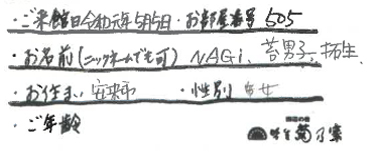 ・ご来館日令和元年5月5日・お部屋番号 505
・お名前(ニックネームでも可) NAGi、苔男子、拓生、
・お住まい 安来市 ・性別 男女
・ご年齢
味を 菊乃家